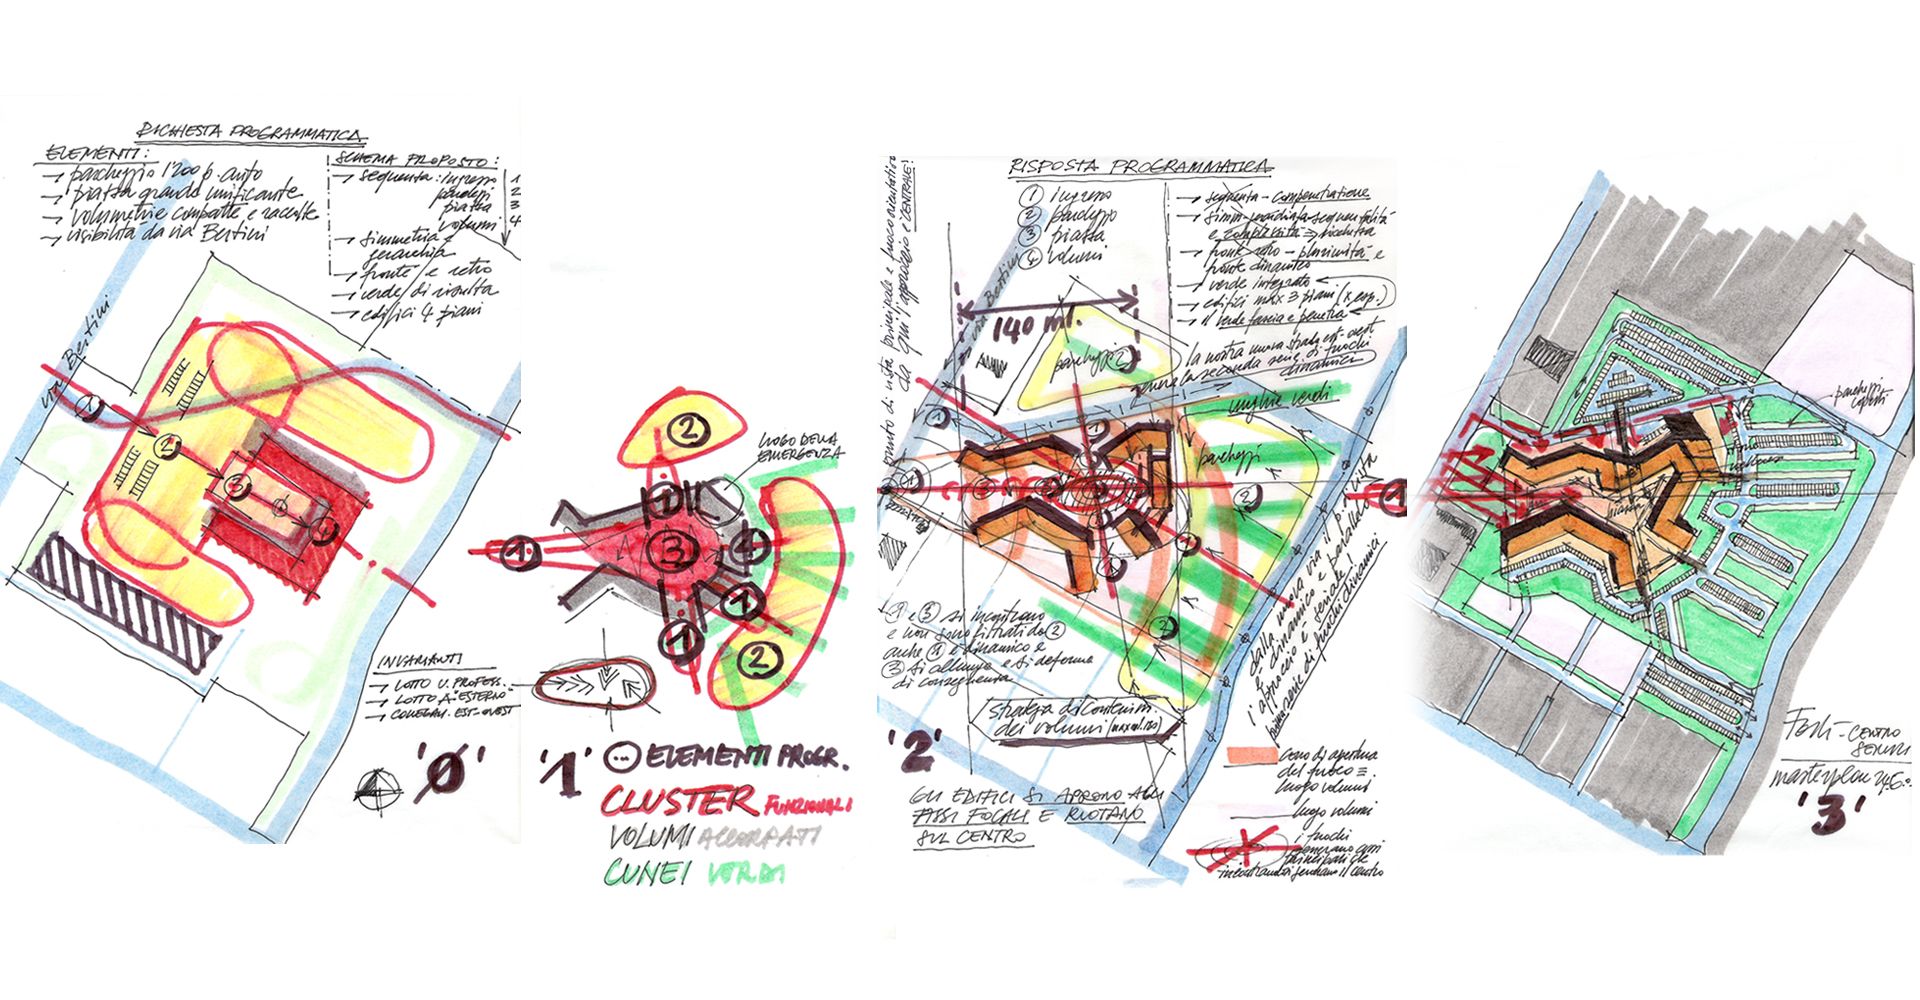 RICHIESTA PROGRAMMATICA
ELEMENTI:
→ parcheggio 1200 p. auto
→ piazza grande unificante
→ volumetrie compatte e raccolte
→ visibilità da via Bertini
SCHEMA PROPOSTO:
→ sequenza: ingresso 1
parcheggi 2
piazza 3
volumi 4
→ simmetria e
gerarchia
→ fronte / e retro
→ verde / di risulta
→ edifici 4 piani
via Bertini
1
2
3
4
INVARIANTI
→ LOTTO U. PROFESS.
→ LOTTO A. "ESTERNO"
→ COLLEGAM. EST-OVEST
'0'
2
LUOGO DELLA
EMERGENZA
1
1
3
4
1
1
2
'1'
ELEMENTI PROGR.
CLUSTER FUNZIONALI
VOLUMI ACCORPATI
CUNEI VERDI
punto di vista principale e fuoco orientativo
da qui approccio e CENTRALE!
RISPOSTA PROGRAMMATICA
1 ingresso
2 parcheggio
3 piazza
4 volumi
→ sequenza - compenetrazione
e complessità → ricchezza
→ fronte retro - plurimità e
fronte dinamico
→ verde integrato
→ edifici max 3 piani (x esp.)
→ il verde fascia e penetra
via Bertini
140 ml.
parcheggi 2
la nostra nuova strada est-ovest
genera la seconda serie di fuochi
dinamici
unghie verdi
parcheggi
1 e 3 si incontrano
e non sono filtrati da 2
anche 1 è dinamico e
3 si allunga e si deforma
di conseguenza
dalla nuova via il p. di vista
è dinamico e parallelo
l'approccio è seriale
prima serie di fuochi dinamici
strategia di contenim.
dei volumi
'2'
GLI EDIFICI SI APRONO AGLI
ASSI FOCALI E RUOTANO
SUL CENTRO
cono di apertura
del fuoco =
luogo volumi
luogo volumi
i fuochi
generano assi
principali che
incontrandosi generano il centro
parcheggi
coperti
piazza
Forlì - CENTRO
SERVIZI
masterplan
'3'